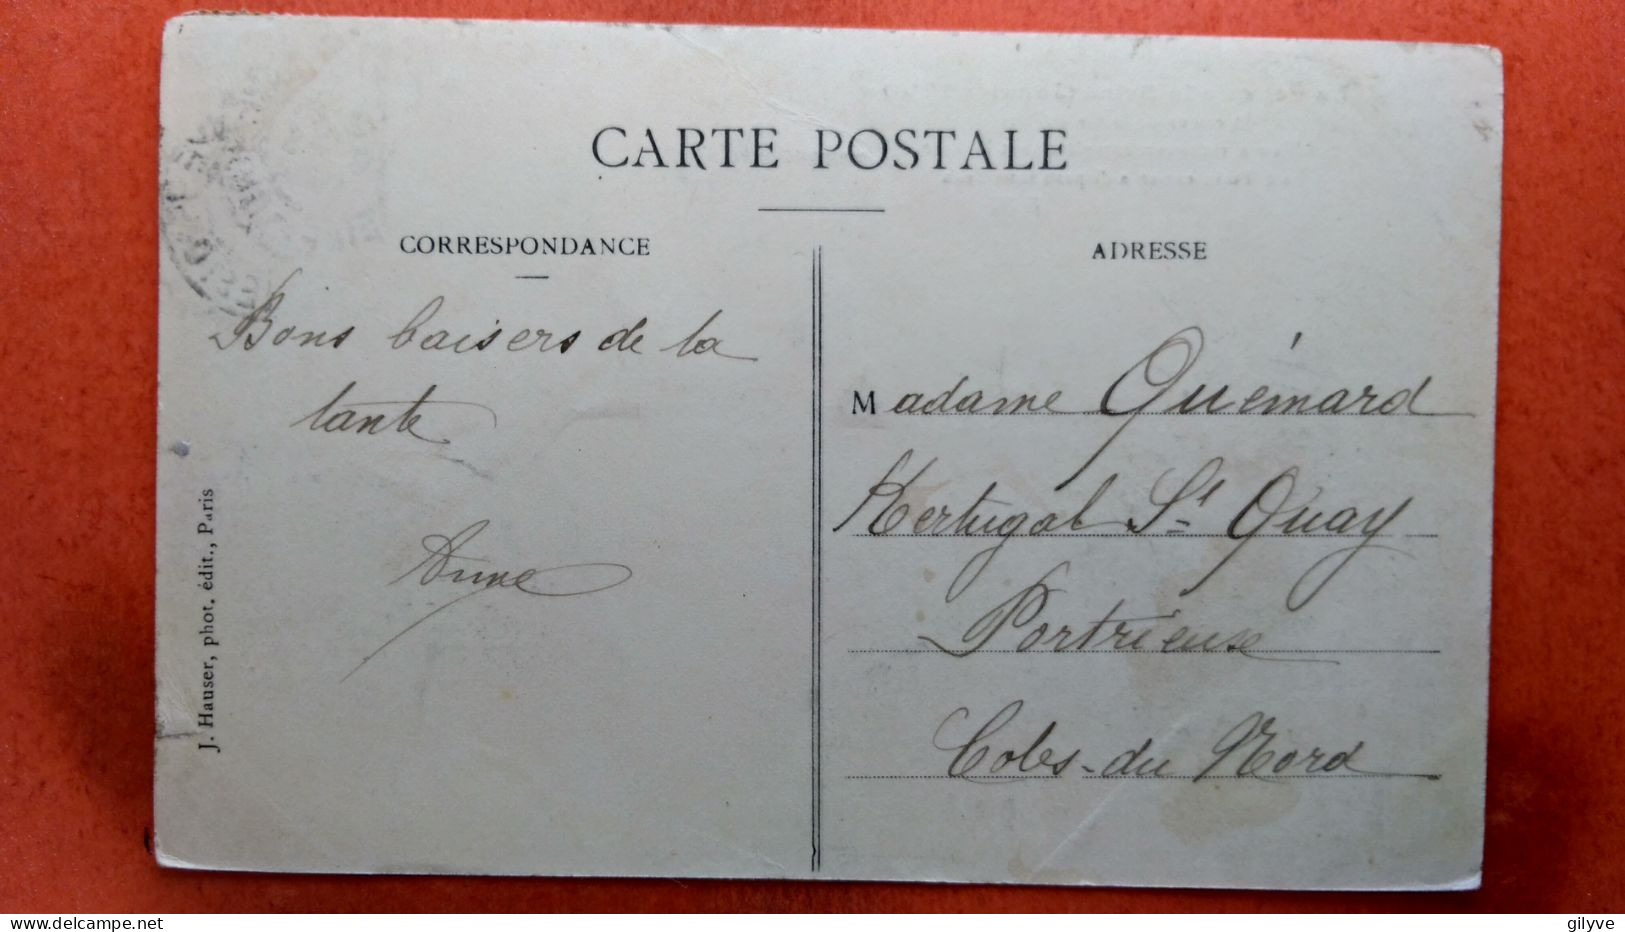 CARTE POSTALE
CORRESPONDANCE
Bons baisers de la
tante
Anne
J. Hauser, phot. édit., Paris
ADRESSE
Madame Quémard
Kertugal St Quay
Portrieuse
Cotes-du Nord
delcampe.net
gilyve